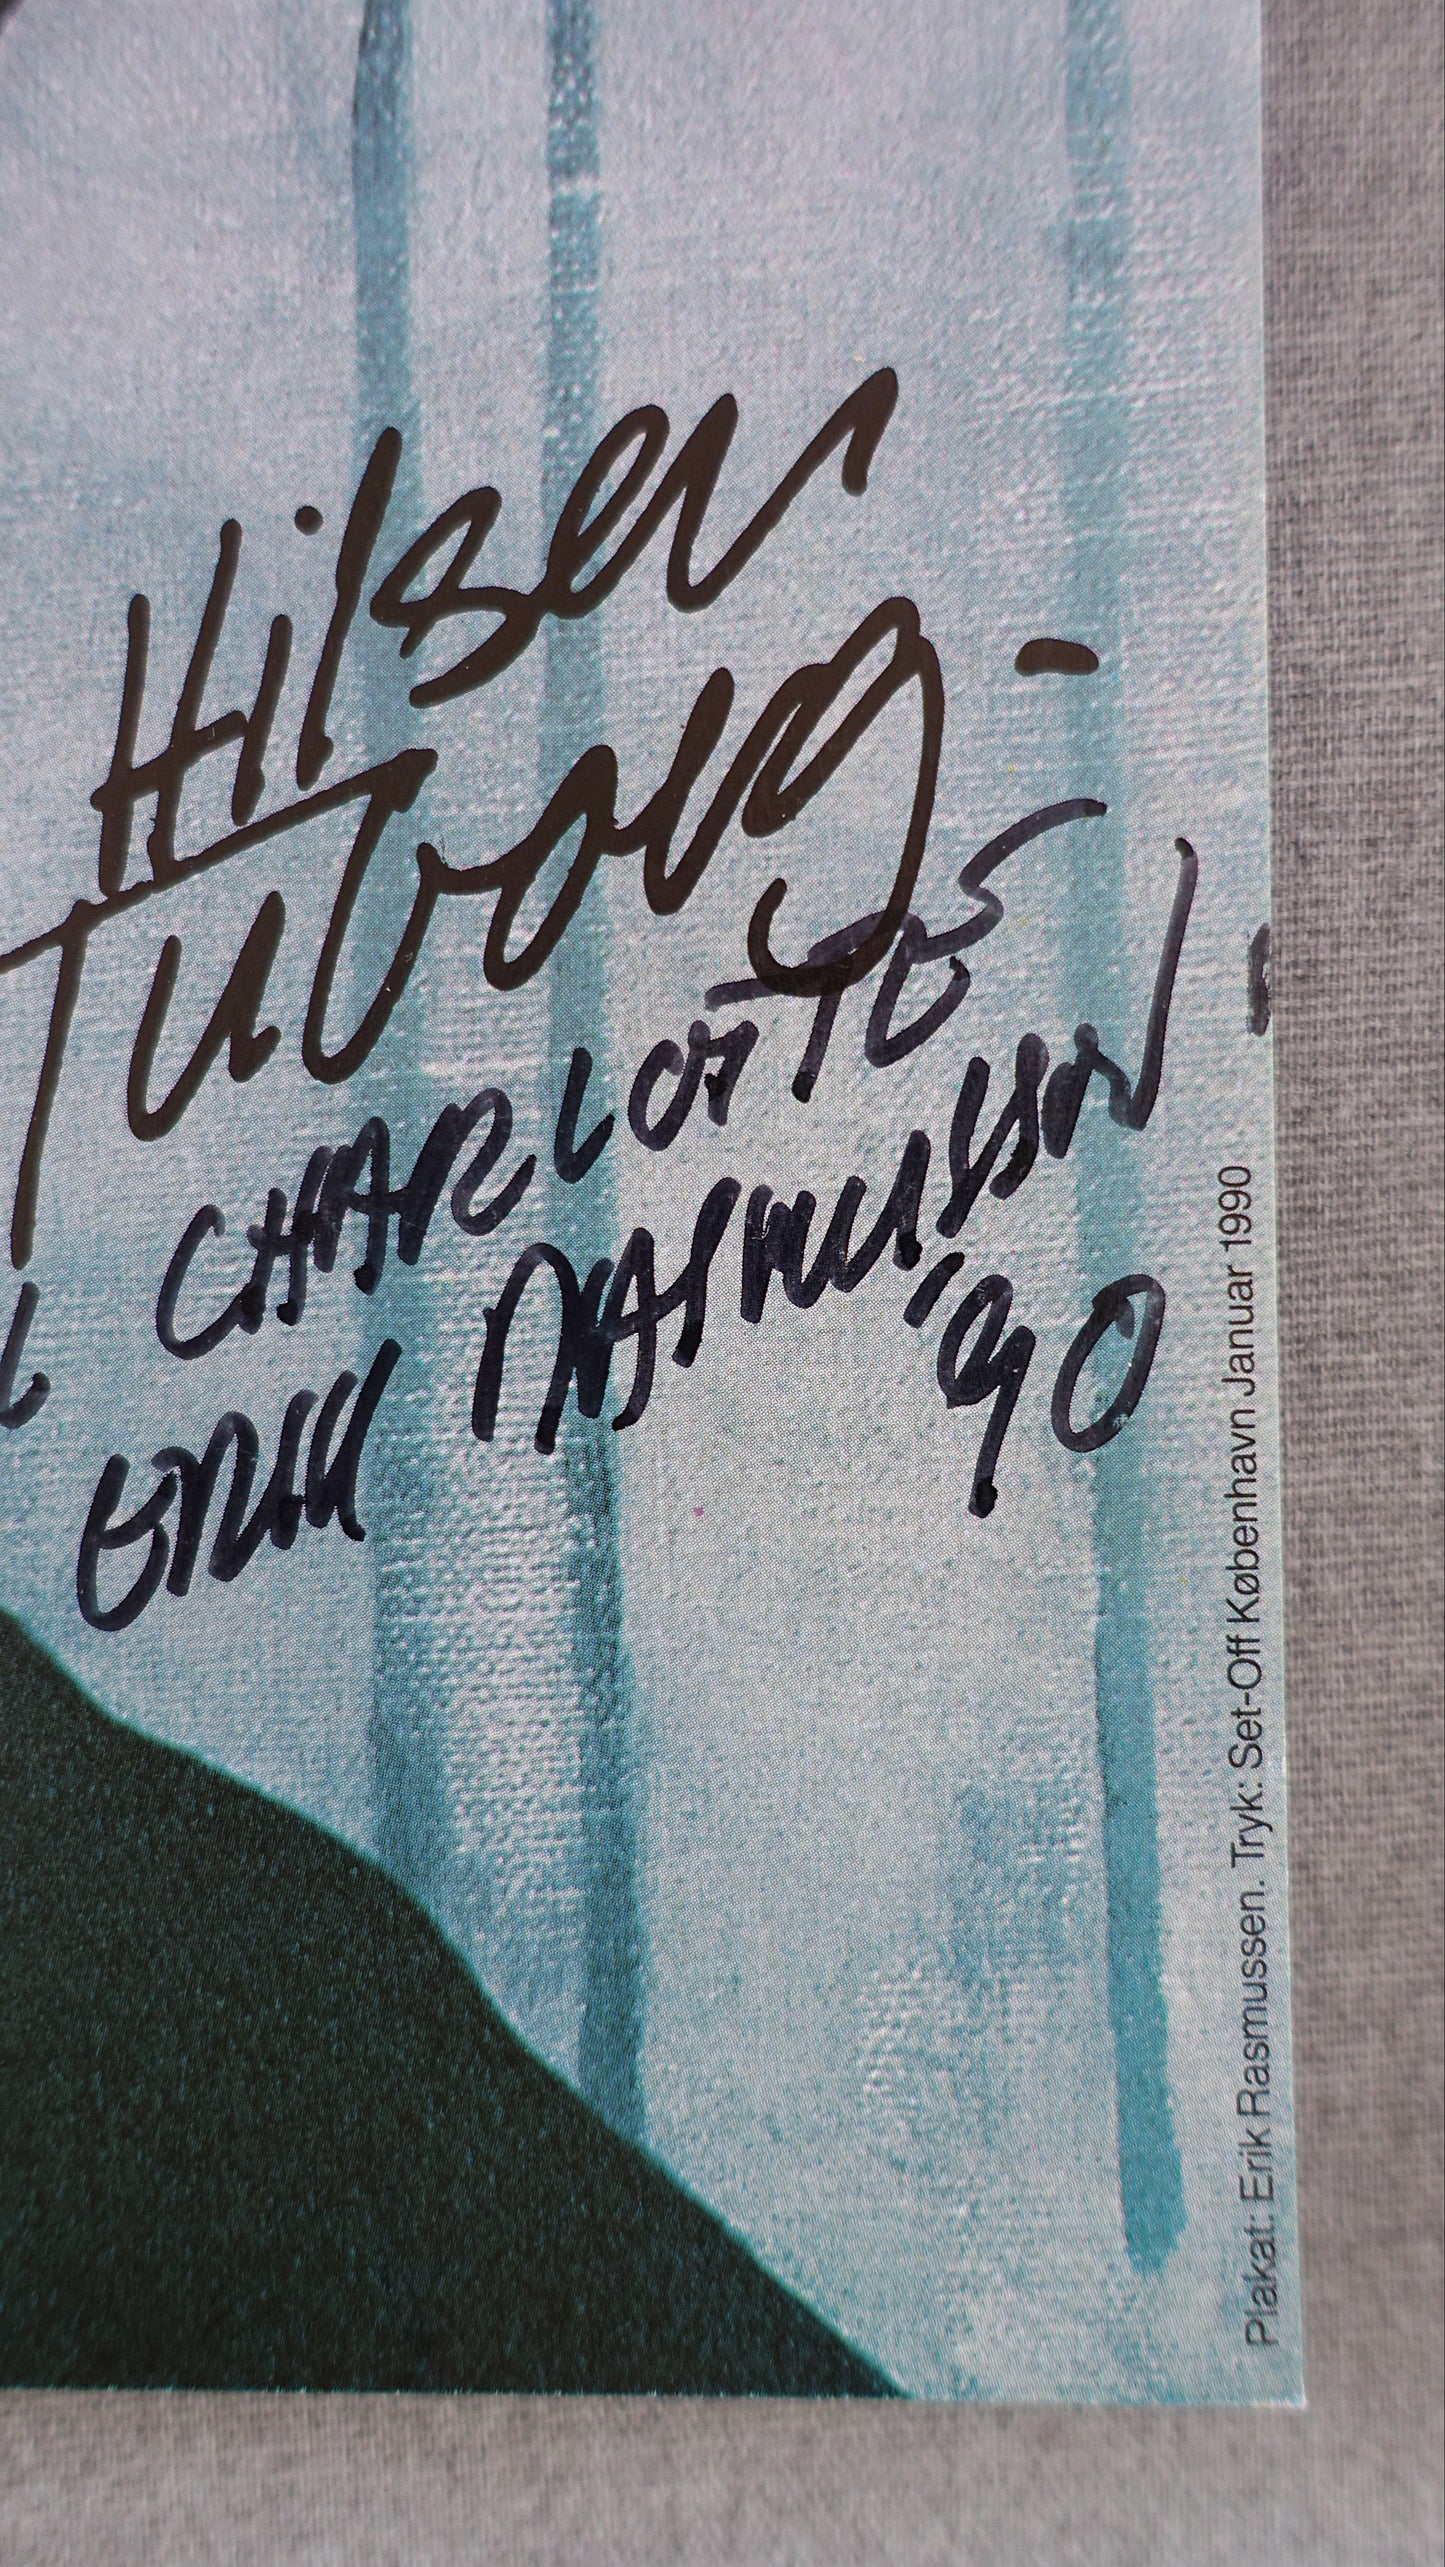 Hilsen
CHARLOTTE
ERIK RASMUSSEN
'90
Plakat: Erik Rasmussen. Tryk: Set-Off København Januar 1990